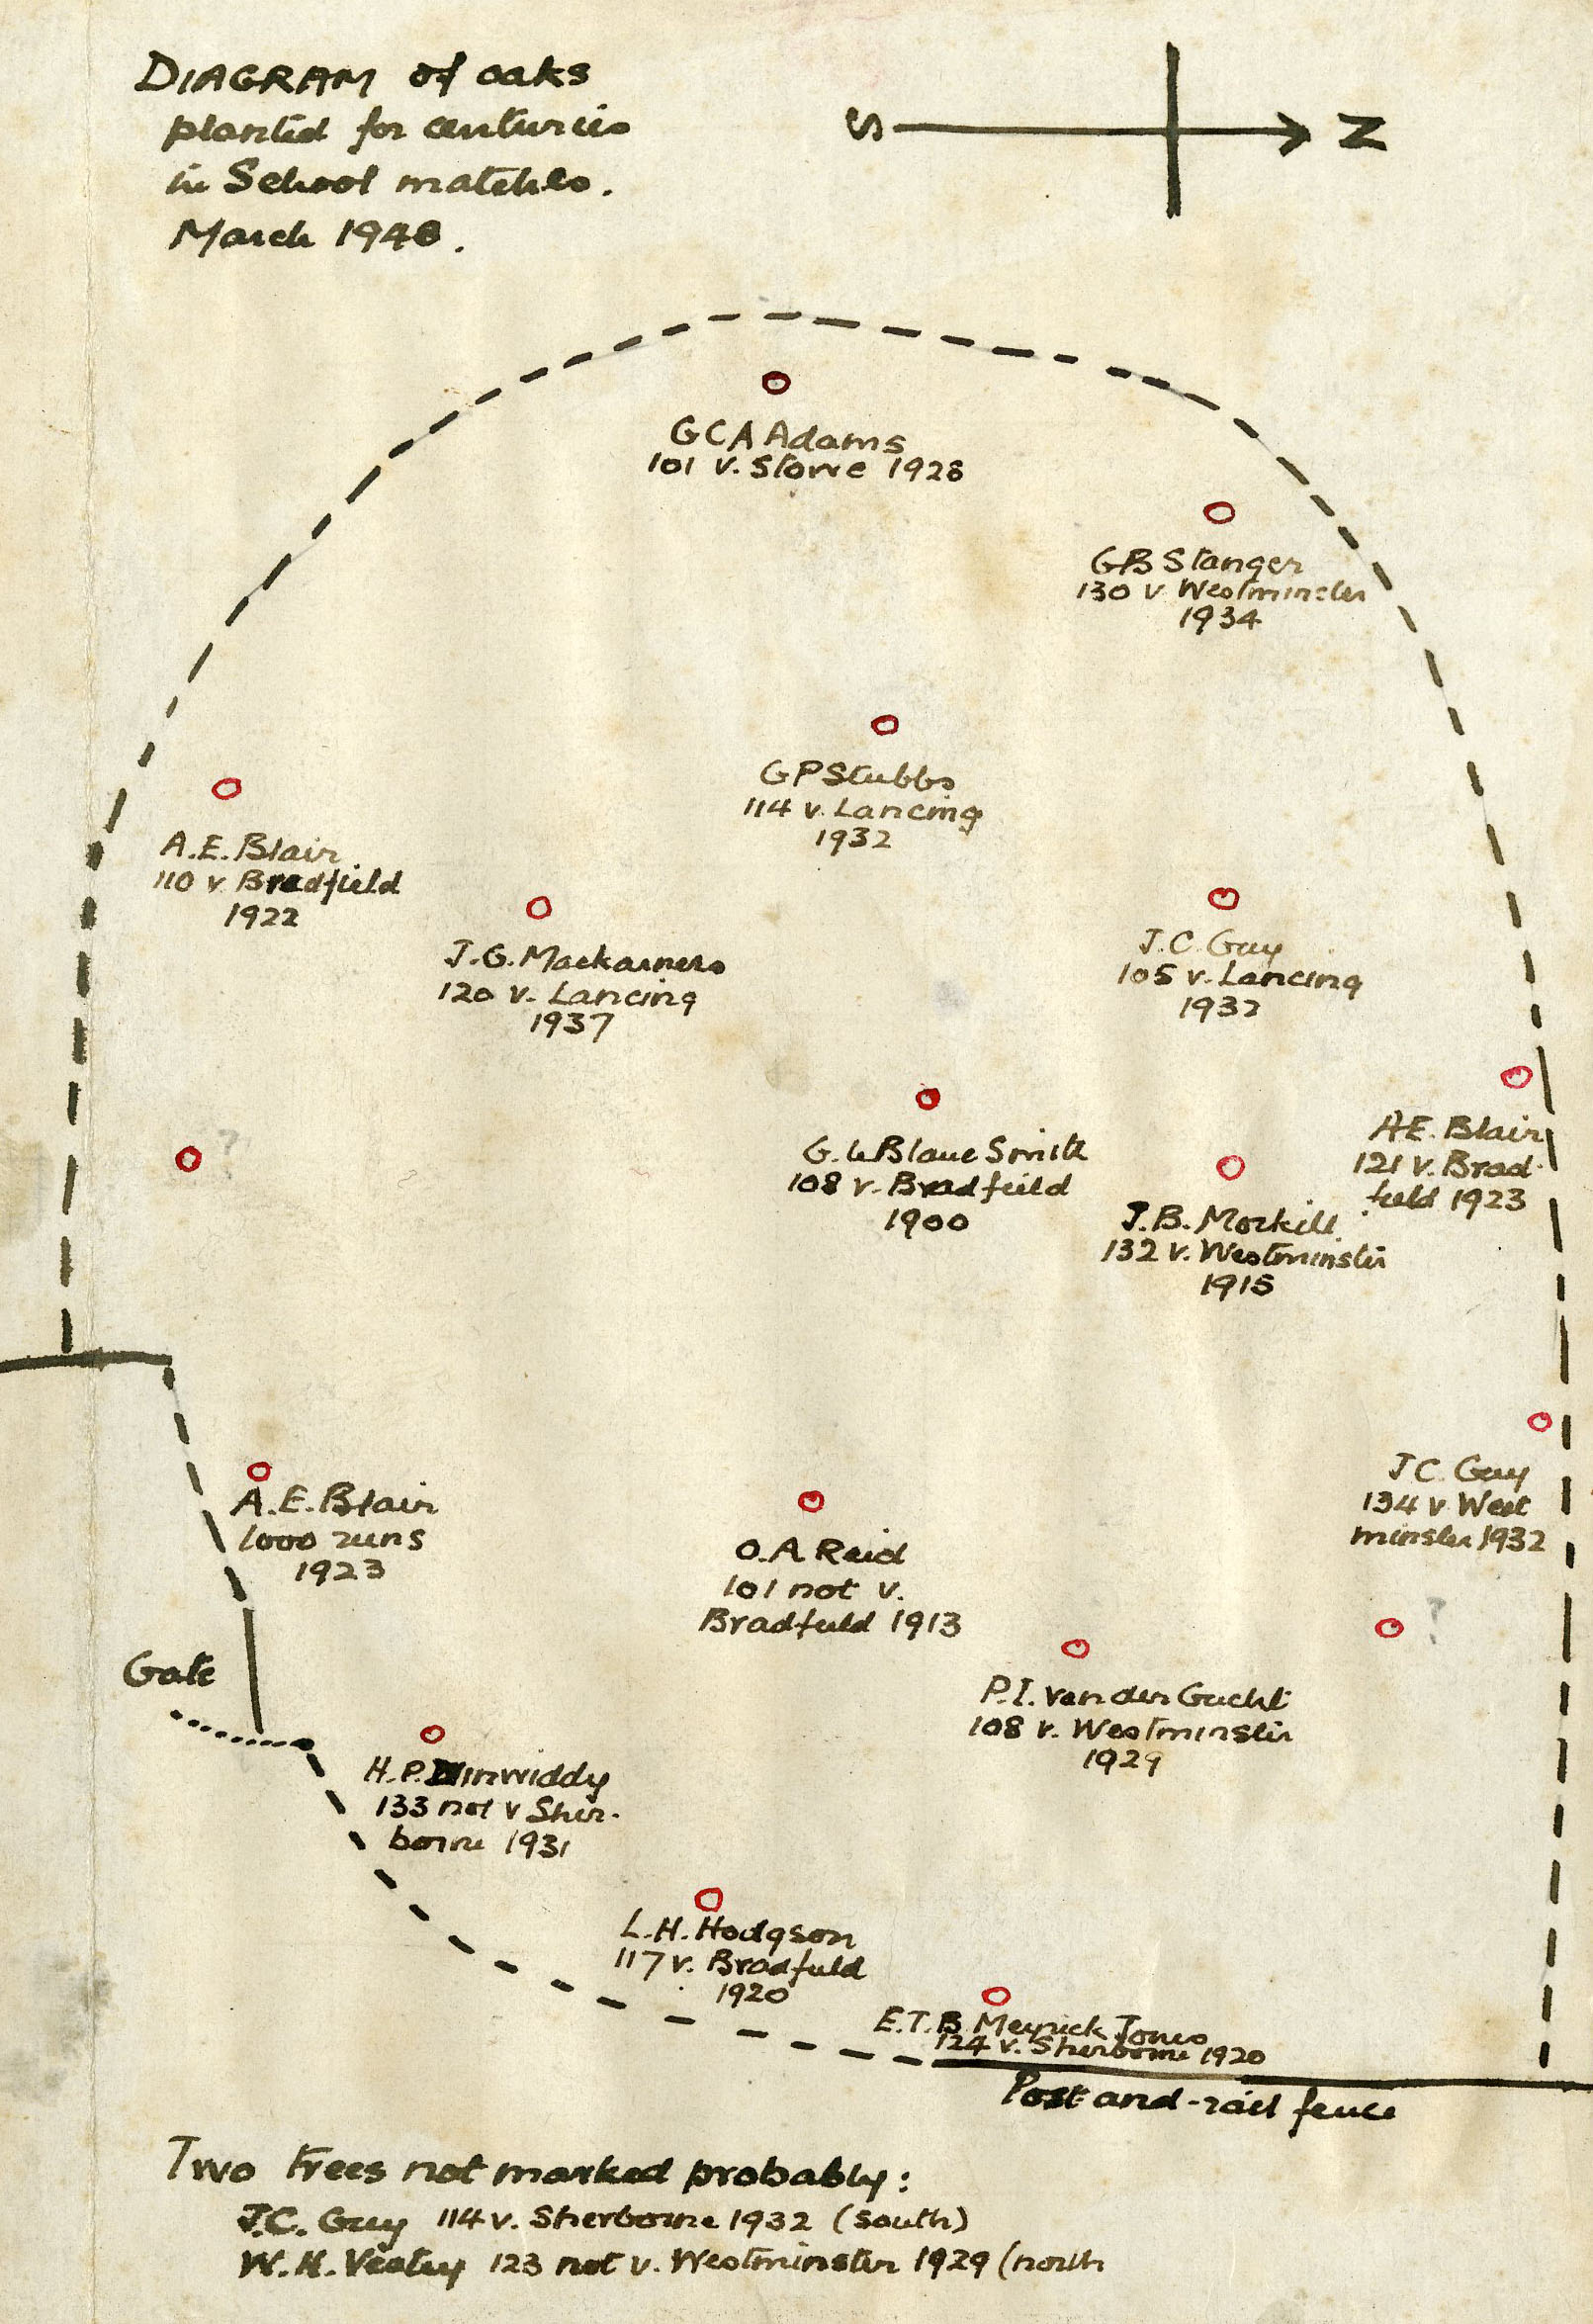 DIAGRAM of oaks
planted for centuries
in School matches.
March 1948.
S
N
G C A Adams
101 v. Stowe 1928
G B Stanger
130 v Westminster
1934
G P Stubbs
114 v. Lancing
1932
A.E. Blair
110 v Bradfield
1922
J.G. Mackarness
120 v. Lancing
1937
J.C. Guy
105 v. Lancing
1932
A.E. Blair
121 v. Brad-
field 1923
?
G. le Blanc Smith
108 v. Bradfield
1900
J.B. Morkill
132 v. Westminster
1915
A.E. Blair
1000 runs
1923
O.A Reid
101 not v.
Bradfield 1913
J C. Guy
134 v West
minster 1932
?
Gate
P.I. van der Gucht
108 v. Westminster
1929
H.P. Dinwiddy
133 not v Sher-
borne 1931
L.H. Hodgson
117 v. Bradfield
1920
E.T.B. Meyrick Jones
124 v. Sherborne 1920
Post and-rail fence
Two trees not marked probably:
J.C. Guy 114 v. Sherborne 1932 (south)
W.H. 123 not v. Westminster 1929 (north